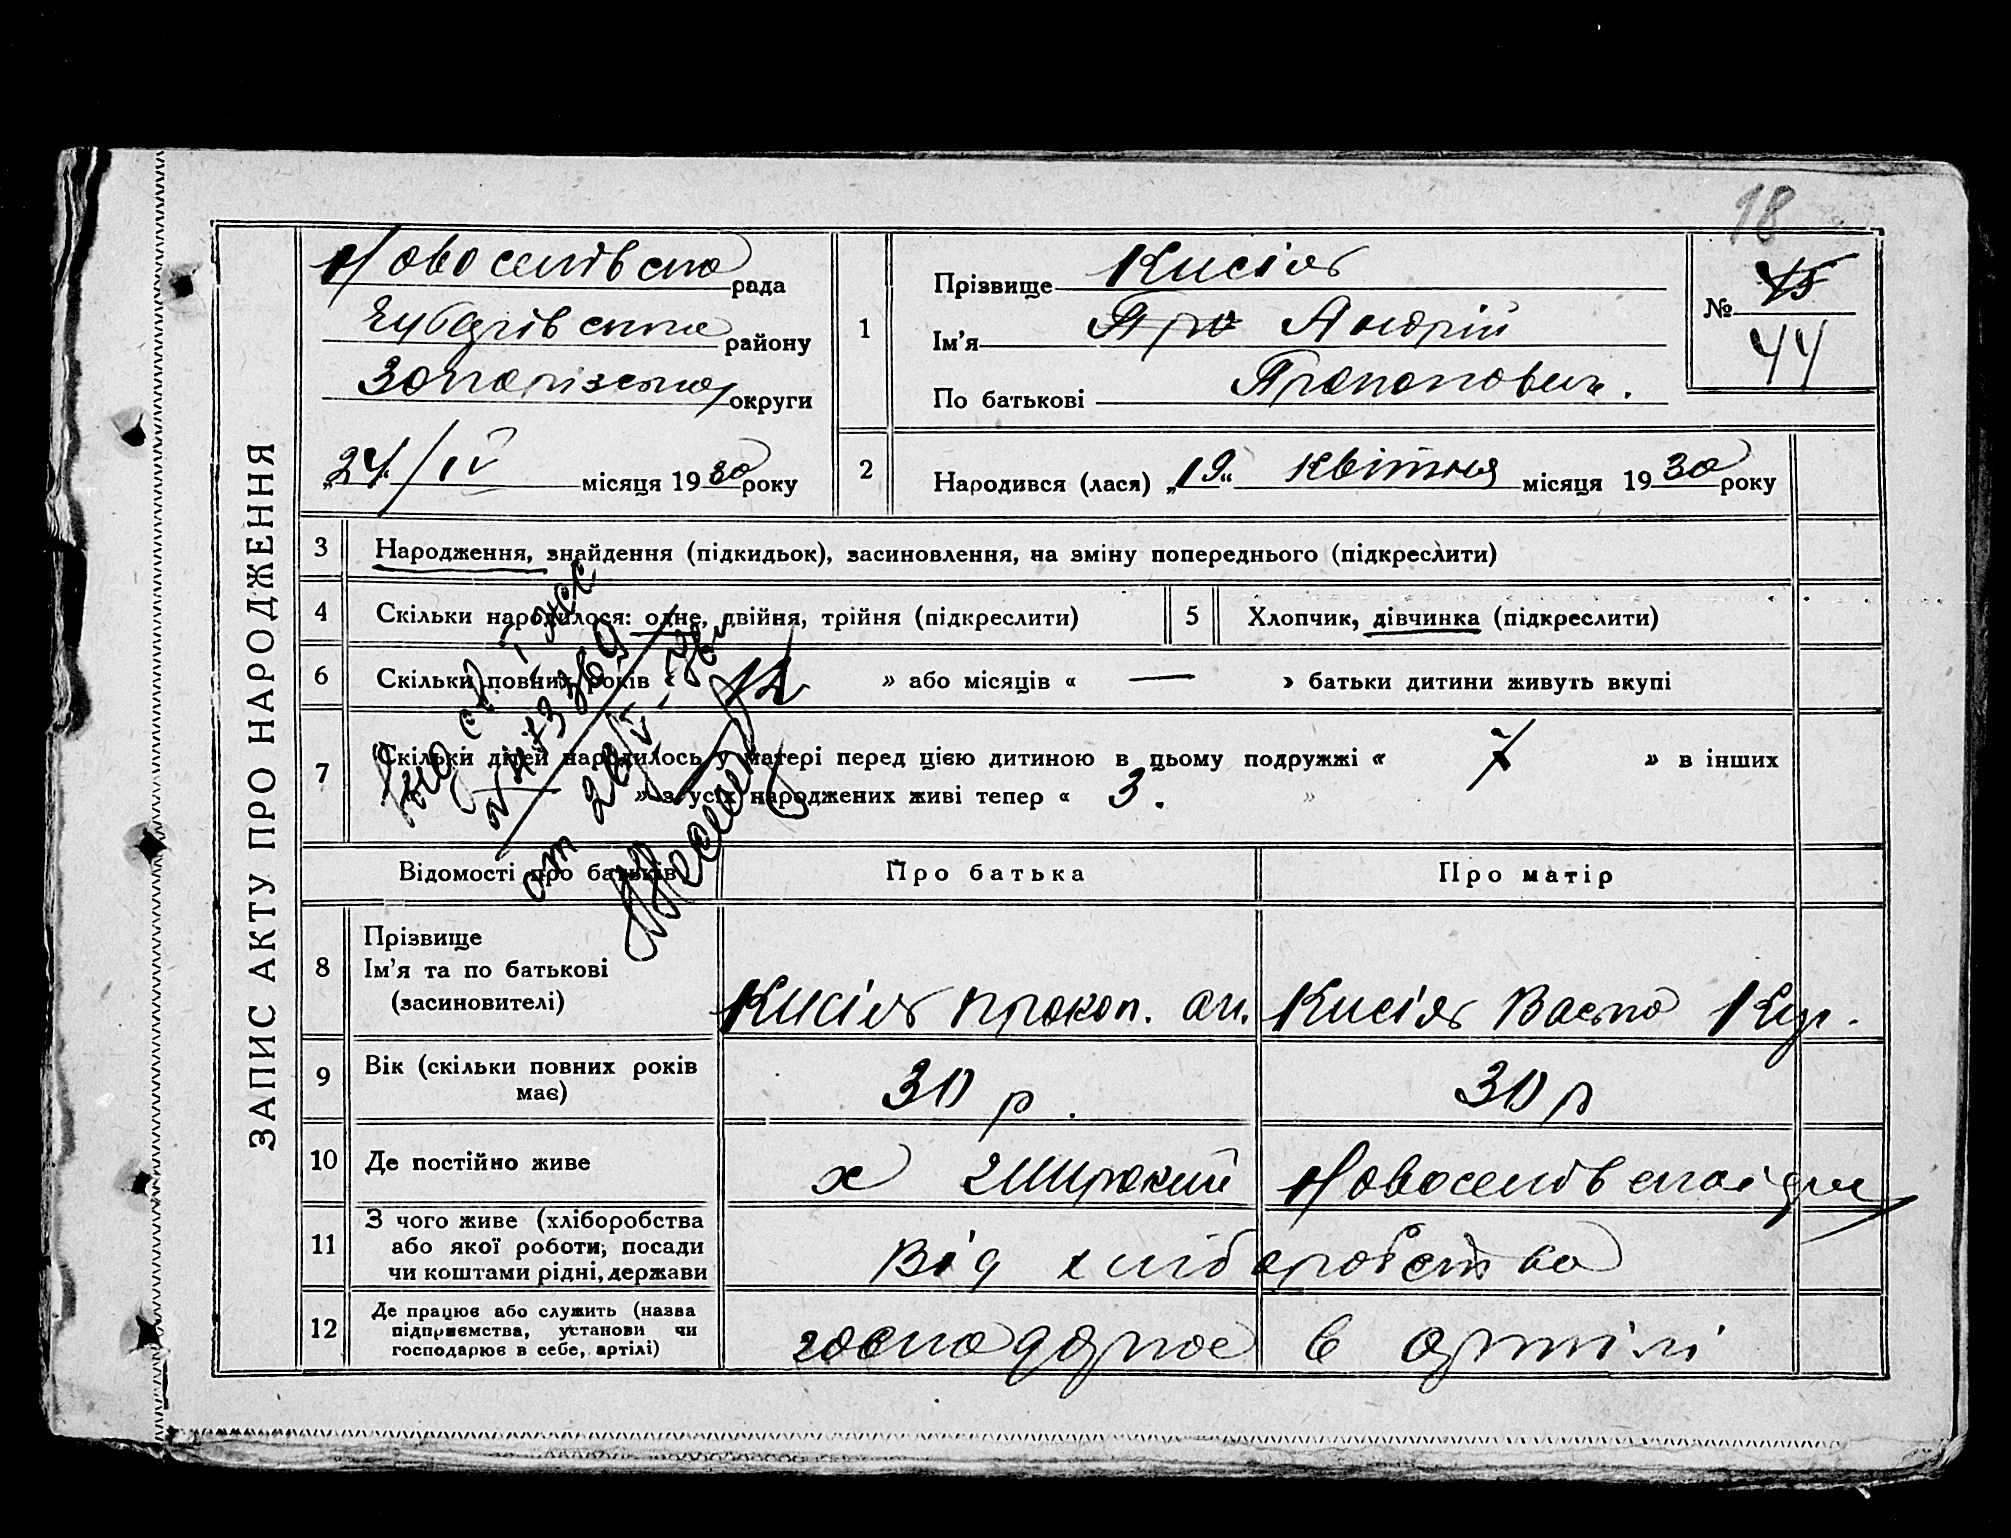 18
ЗАПИС АКТУ ПРО НАРОДЖЕННЯ
Новоселівська рада
Чубарівська району
Запорізька округи
„24“/IV місяця 1930 року
1
Прізвище Кисіль
Ім'я Про Андрій
По батькові Прокопович.
№ 15
44
2
Народився (лася) „19“ квітня місяця 1930 року
3 Народження, знайдення (підкидьок), засиновлення, на зміну попереднього (підкреслити)
4 Скільки народилося: одне, двійня, трійня (підкреслити)
5 Хлопчик, дівчинка (підкреслити)
6 Скільки повних років 12 » або місяців « — » батьки дитини живуть вкупі
7 Скільки дітей народилось у матері перед цією дитиною в цьому подружжі « » в інших
» з усіх народжених живі тепер « 3. »
от 26/V-
Відомості про батьків
Про батька
Про матір
8 Прізвище
Ім'я та по батькові
(засиновителі)
Кисіль Прокоп. Ан.
Кисіль Васта Кир.
9 Вік (скільки повних років
має)
30 р.
30 р
10 Де постійно живе
х Широкий
Новоселівської
11 З чого живе (хліборобства
або якої роботи, посади
чи коштами рідні, держави
від хліборобства
12 Де працює або служить (назва
підприємства, установи чи
господарює в себе, артілі)
господарює в артілі